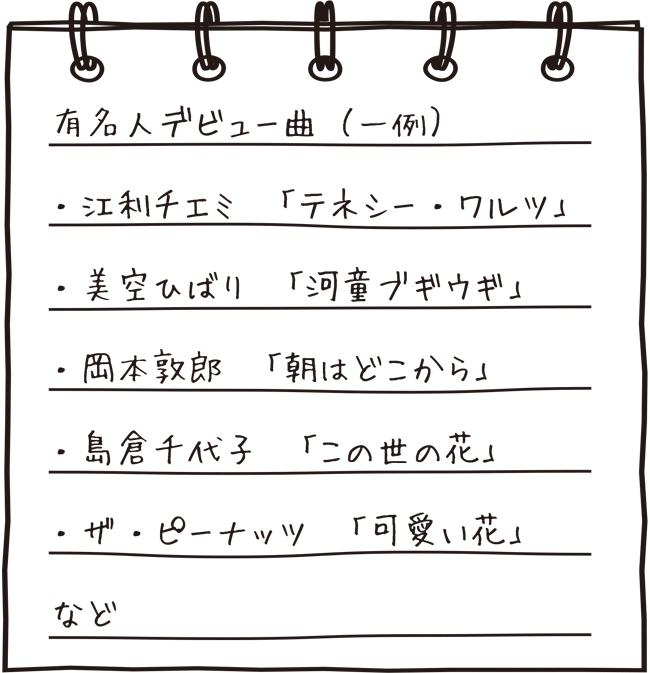 有名人デビュー曲（一例）
・江利チエミ　「テネシー・ワルツ」
・美空ひばり　「河童ブギウギ」
・岡本敦郎　「朝はどこから」
・島倉千代子　「この世の花」
・ザ・ピーナッツ　「可愛い花」
など